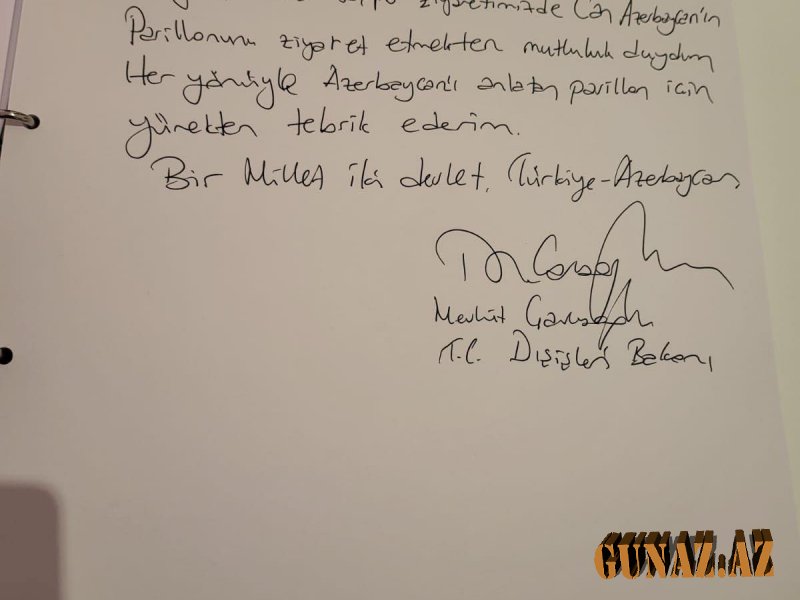 ziyaretimizde Can Azerbaycan'ın
Pavillonunu ziyaret etmekten mutluluk duydum
Her yönüyle Azerbaycan'ı anlatan pavillon için
yürekten tebrik ederim.
Bir Millet iki devlet, Türkiye-Azerbaycan
Mevlüt Çavuşoğlu
T.C. Dışişleri Bakanı
GUNAZ.AZ